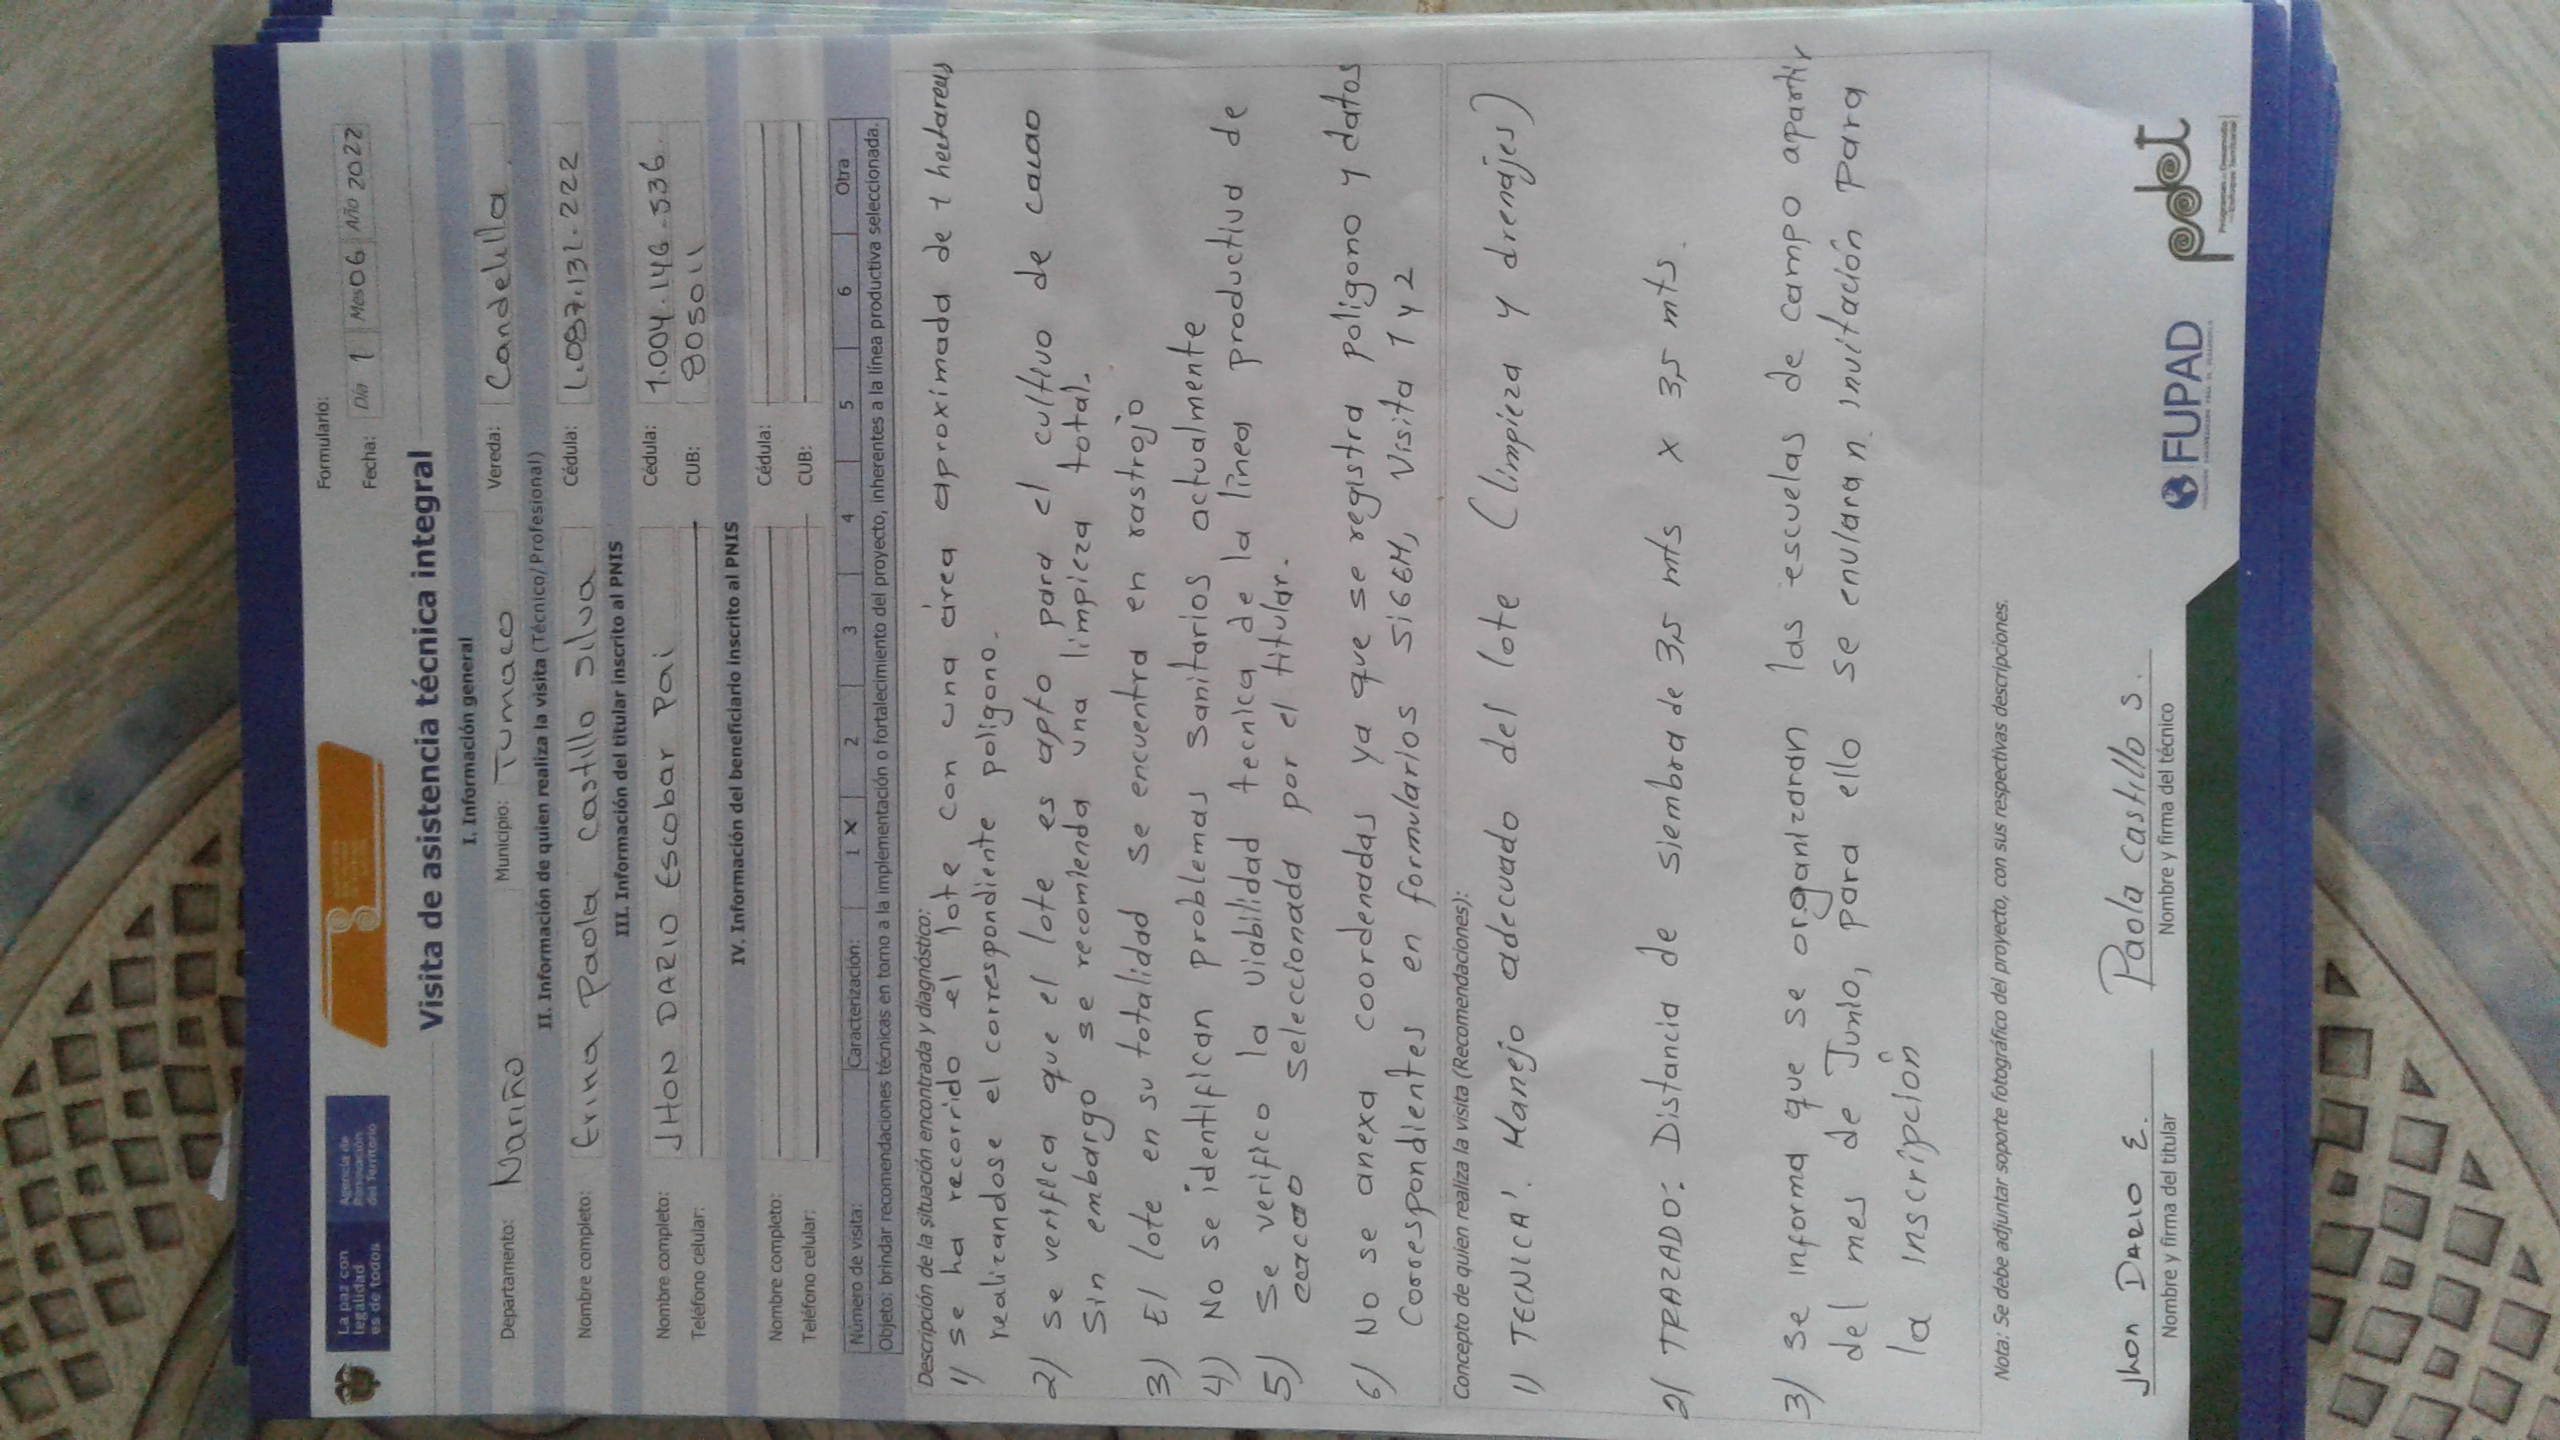 La paz con
legalidad
es de todos
Agencia de
Renovación
del Territorio
Formulario:
Fecha: Día 1 Mes 06 Año 2022
Visita de asistencia técnica integral
I. Información general
Departamento: Nariño Municipio: Tumaco Vereda: Candelilla
II. Información de quien realiza la visita (Técnico/Profesional)
Nombre completo: Erina Paola Castillo Silva Cédula: 1.087.131.222
III. Información del titular inscrito al PNIS
Nombre completo: JHON DARIO Escobar Pai Cédula: 1.004.146.536
Teléfono celular: CUB: 805011
IV. Información del beneficiario inscrito al PNIS
Nombre completo: Cédula:
Teléfono celular: CUB:
Número de visita: Caracterización: 1 X 2 3 4 5 6 Otra
Objeto: brindar recomendaciones técnicas en torno a la implementación o fortalecimiento del proyecto, inherentes a la línea productiva seleccionada.
Descripción de la situación encontrada y diagnóstico:
1) se ha recorrido el lote con una área aproximada de 1 hectareas
realizandose el correspondiente poligono.
2) se verifica que el lote es apto para el cultivo de cacao
Sin embargo se recomienda una limpieza total.
3) El lote en su totalidad se encuentra en rastrojo
4) No se identifican problemas sanitarios actualmente
5) Se verifico la viabilidad tecnica de la línea productiva de
cacao seleccionada por el titular.
6) No se anexa coordenadas ya que se registra poligono y datos
Correspondientes en formularios SIGGM, Visita 1 y 2
Concepto de quien realiza la visita (Recomendaciones):
1) TECNICA: Manejo adecuado del lote (limpieza y drenajes)
2) TRAZADO: Distancia de siembra de 3,5 mts x 3,5 mts.
3) Se informa que se organizaran las escuelas de campo apartir
del mes de Junio, para ello se enviaran invitación para
la inscripción
Nota: Se debe adjuntar soporte fotográfico del proyecto, con sus respectivas descripciones.
Jhon DARIO E. Paola Castillo S.
Nombre y firma del titular Nombre y firma del técnico
FUPAD
pdet